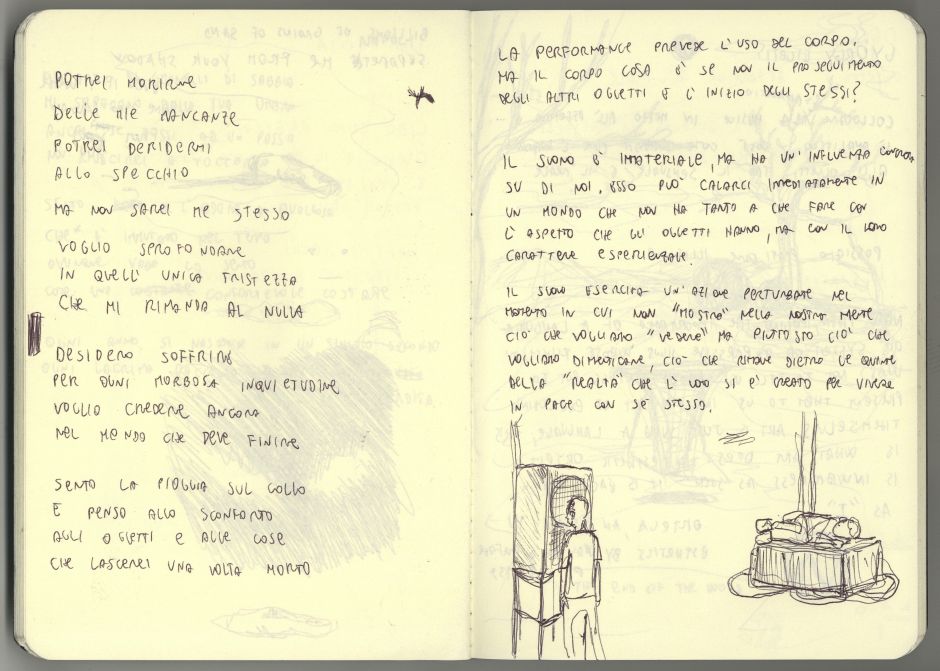 POTREI MORIRNE
DELLE MIE MANCANZE
POTREI DERIDERMI
ALLO SPECCHIO
MA NON SAREI ME STESSO
VOGLIO SPROFONDARE
IN QUELL' UNICA TRISTEZZA
CHE MI RIMANDA AL NULLA
DESIDERO SOFFRIRE
PER OGNI MORBOSA INQUIETUDINE
VOGLIO CREDERE ANCORA
NEL MONDO CHE DEVE FINIRE
SENTO LA PIOGGIA SUL COLLO
E PENSO ALLO SCONFORTO
AGLI OGGETTI E ALLE COSE
CHE LASCEREI UNA VOLTA MORTO
LA PERFORMANCE PREVEDE L'USO DEL CORPO.
MA IL CORPO COSA È SE NON IL PROSEGUIMENTO
DEGLI ALTRI OGGETTI E L'INIZIO DEGLI STESSI?
IL SUONO È IMMATERIALE, MA HA UN'INFLUENZA CONCRETA
SU DI NOI. ESSO PUÒ CALARCI IMMEDIATAMENTE IN
UN MONDO CHE NON HA TANTO A CHE FARE CON
L'ASPETTO CHE GLI OGGETTI HANNO, MA CON IL LORO
CARATTERE ESPERIENZIALE.
IL SUONO ESERCITA UN'AZIONE PERTURBANTE NEL
MOMENTO IN CUI NON "MOSTRA" NELLA NOSTRA MENTE
CIÒ CHE VOGLIAMO "VEDERE" MA PIUTTOSTO CIÒ CHE
VOGLIAMO DIMENTICARE, CIÒ CHE RIMANE DIETRO LE QUINTE
DELLA "REALTÀ" CHE L'UOMO SI È CREATO PER VIVERE
IN PACE CON SÉ STESSO.